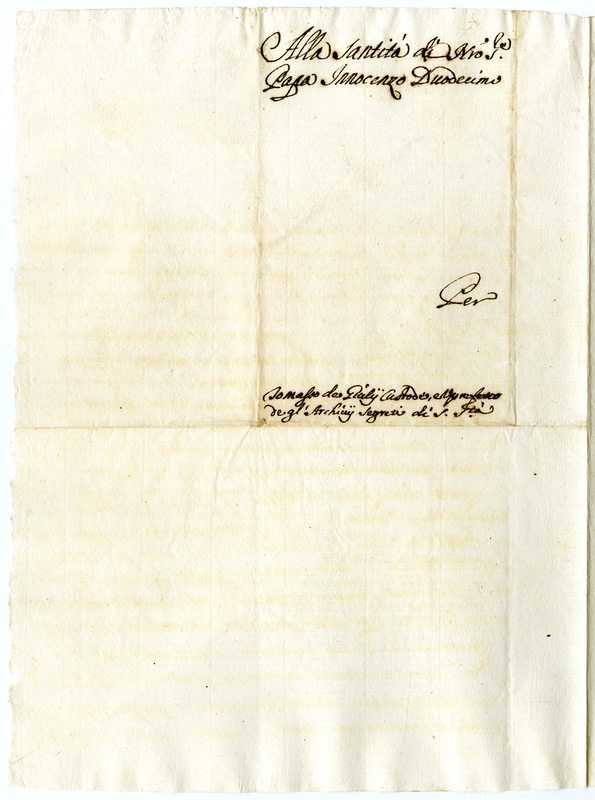 Alla Santità di Nro S.re
Papa Innocenzo Duodecimo
Per
Tomasso de Giulij Custode, e
de gl' Archivij Segreti di S. S.tà